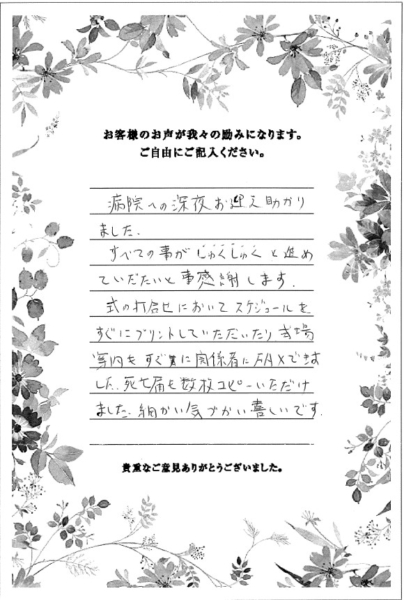 お客様のお声が我々の励みになります。
ご自由にご記入ください。
病院への深夜お迎え助かり
ました.
すべての事がじゅくじゅくと進め
ていだたいと事感謝します.
式の打合せにおいてスケジュールを
すぐにプリントしていただいたり 式場
案内をすぐに関係者にFAXできま
した. 死亡届も数枚コピーいただけ
ました. 細かい気づかい喜しいです.
貴重なご意見ありがとうございました。